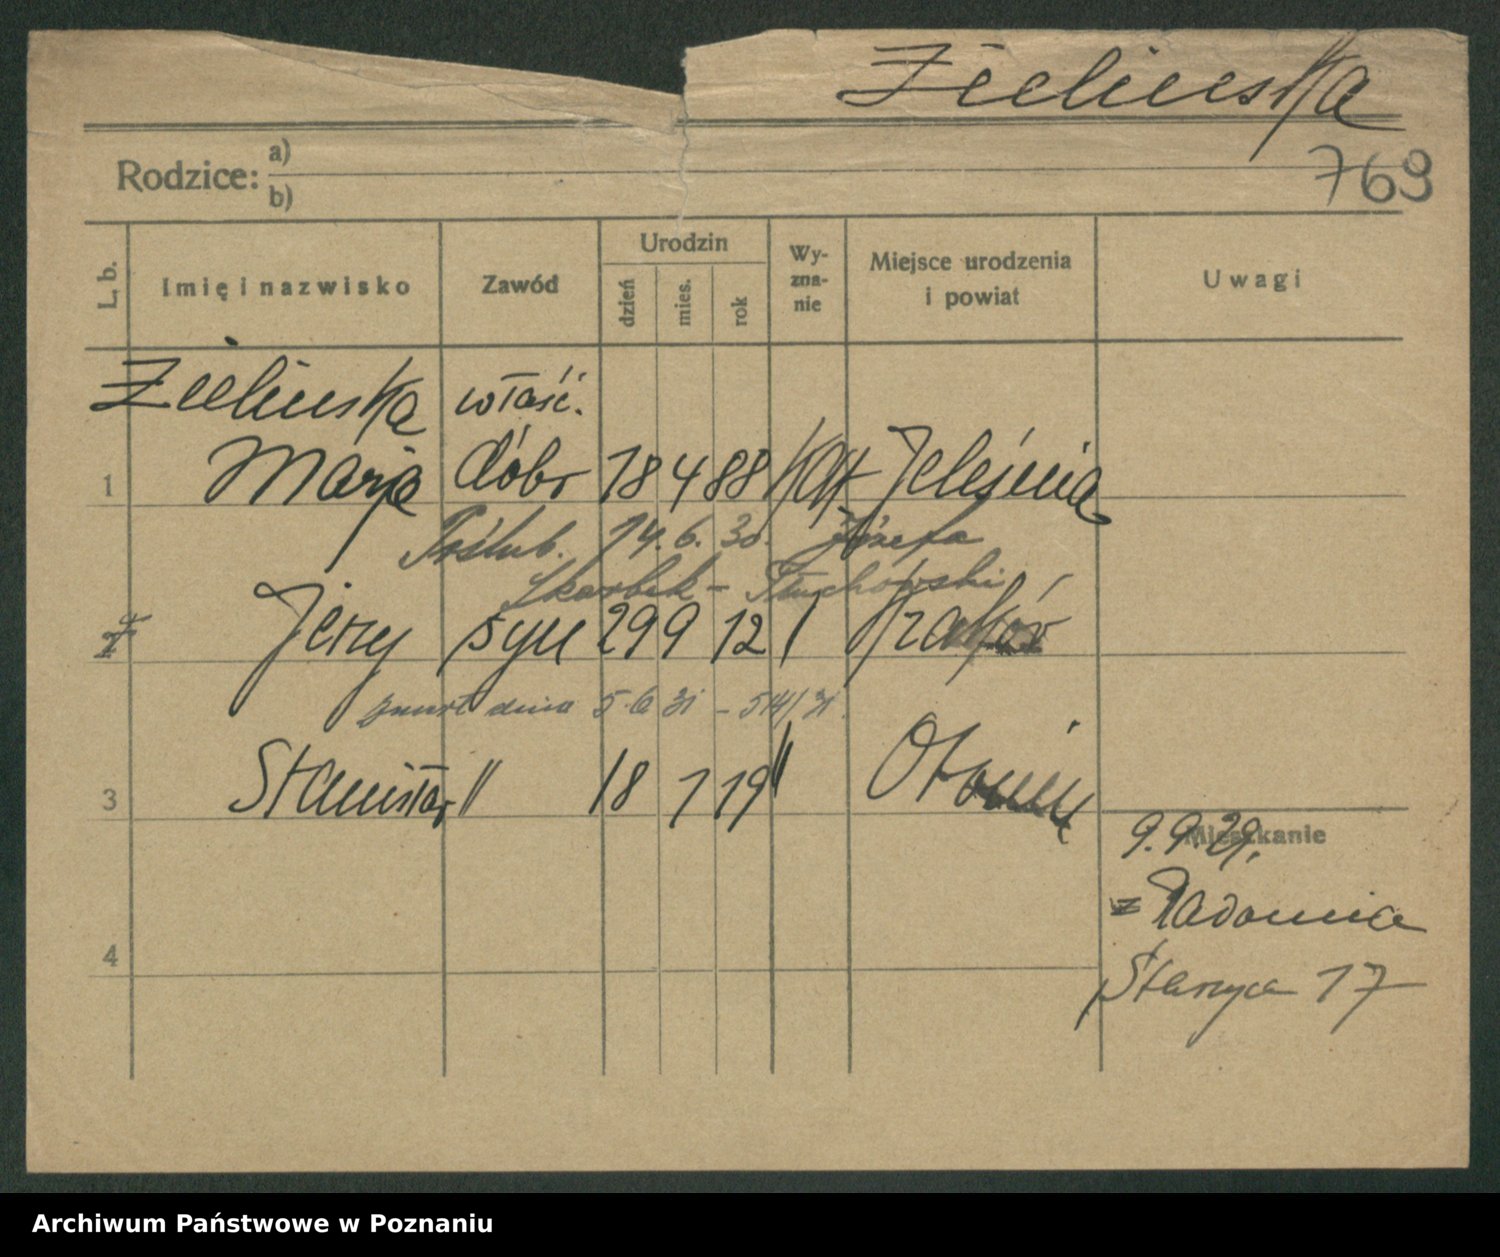 Zielinska
769
Rodzice: a)
b)
L. b. Imię i nazwisko Zawód Urodzin dzień mies. rok Wy-zna-nie Miejsce urodzenia i powiat Uwagi
Zielinska właść.
1 Marja dóbr 18 4 88 kat Jeleśnia
Poślub. 14. 6. 30. Józefa
Skarbek - Tłuchowski
Jerzy syn 29 9 12 Kraków
zmarł dnia 5 6 31 - 514/31.
3 Stanisław " 18 1 19 "
Mieszkanie
9. 9. 29.
z Radomia
4
17
Archiwum Państwowe w Poznaniu